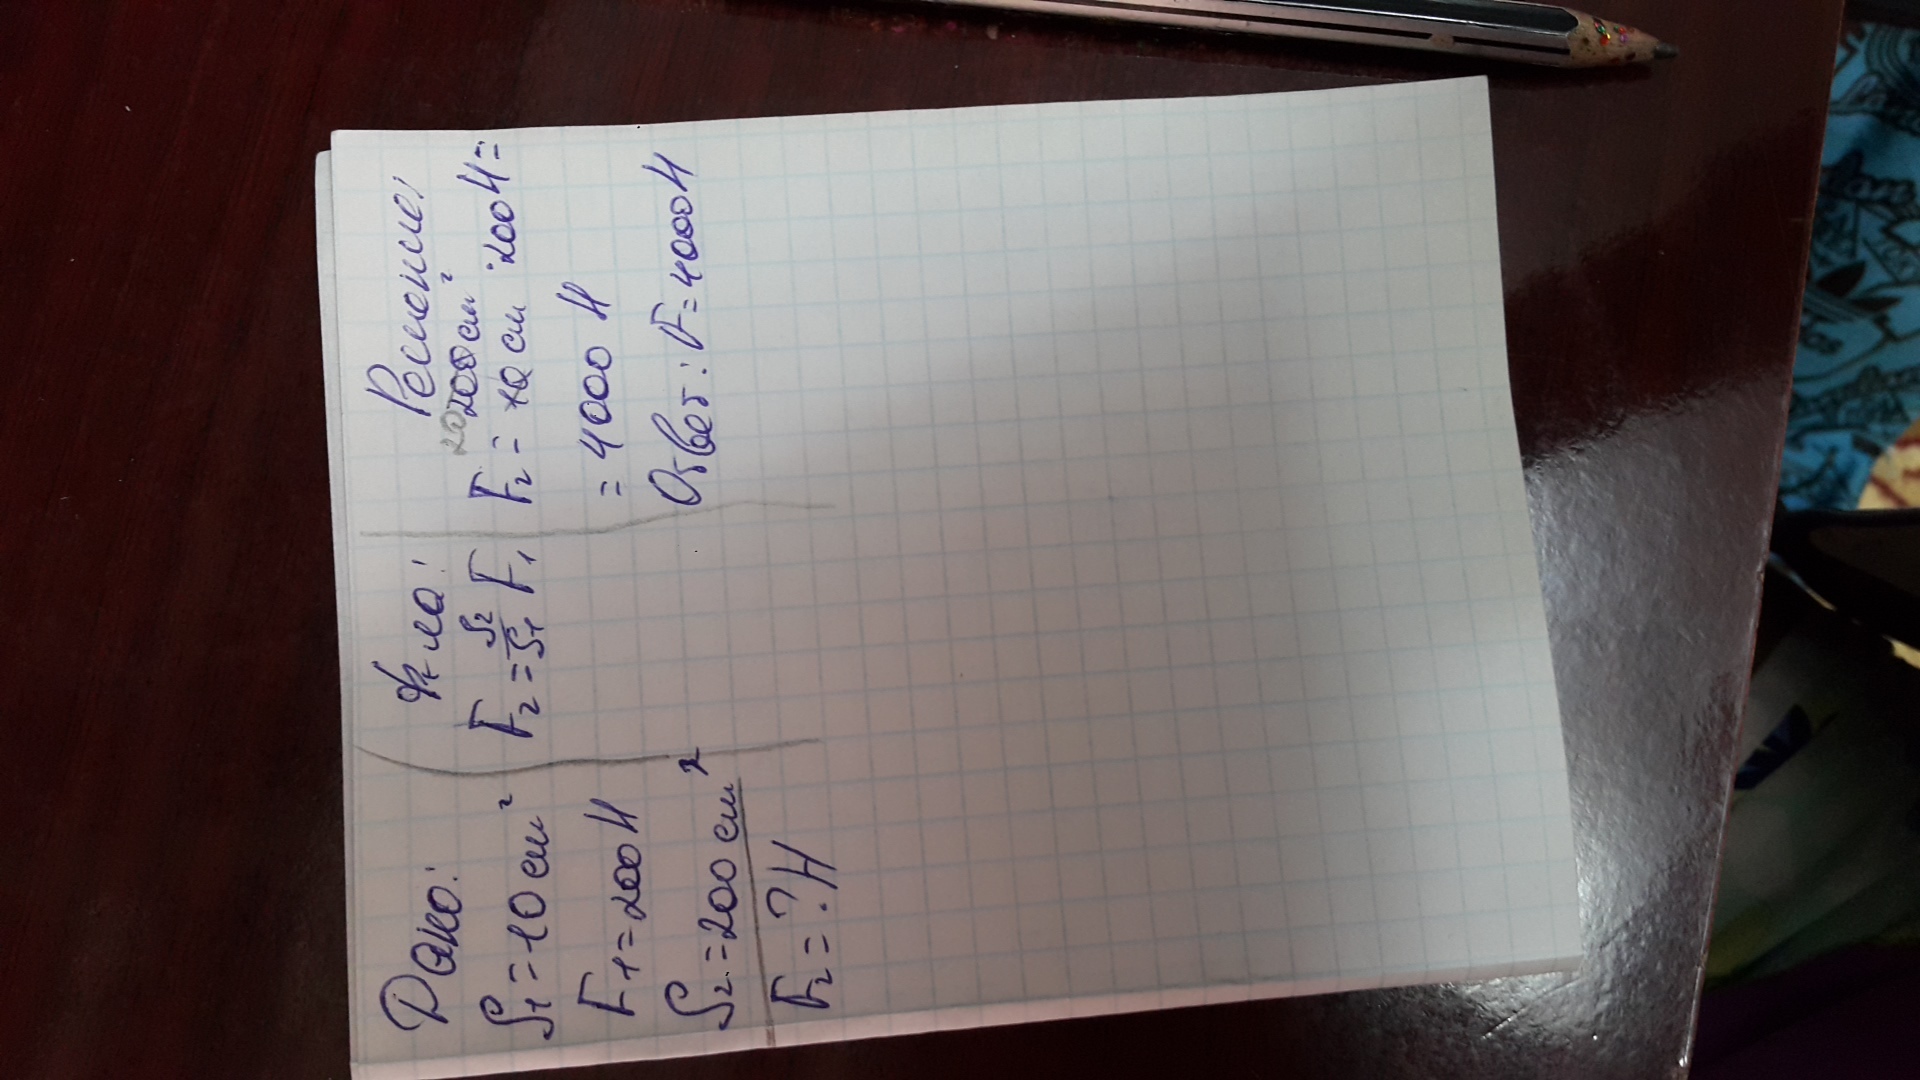 Дано:
S1=10см²
F1=200Н
S2=200см²
F2=?Н
Ф-ла:
F2=S2/S1 F1
Решение:
20
F2=200см²/10см·200Н=
=4000 Н
Ответ: F=4000Н